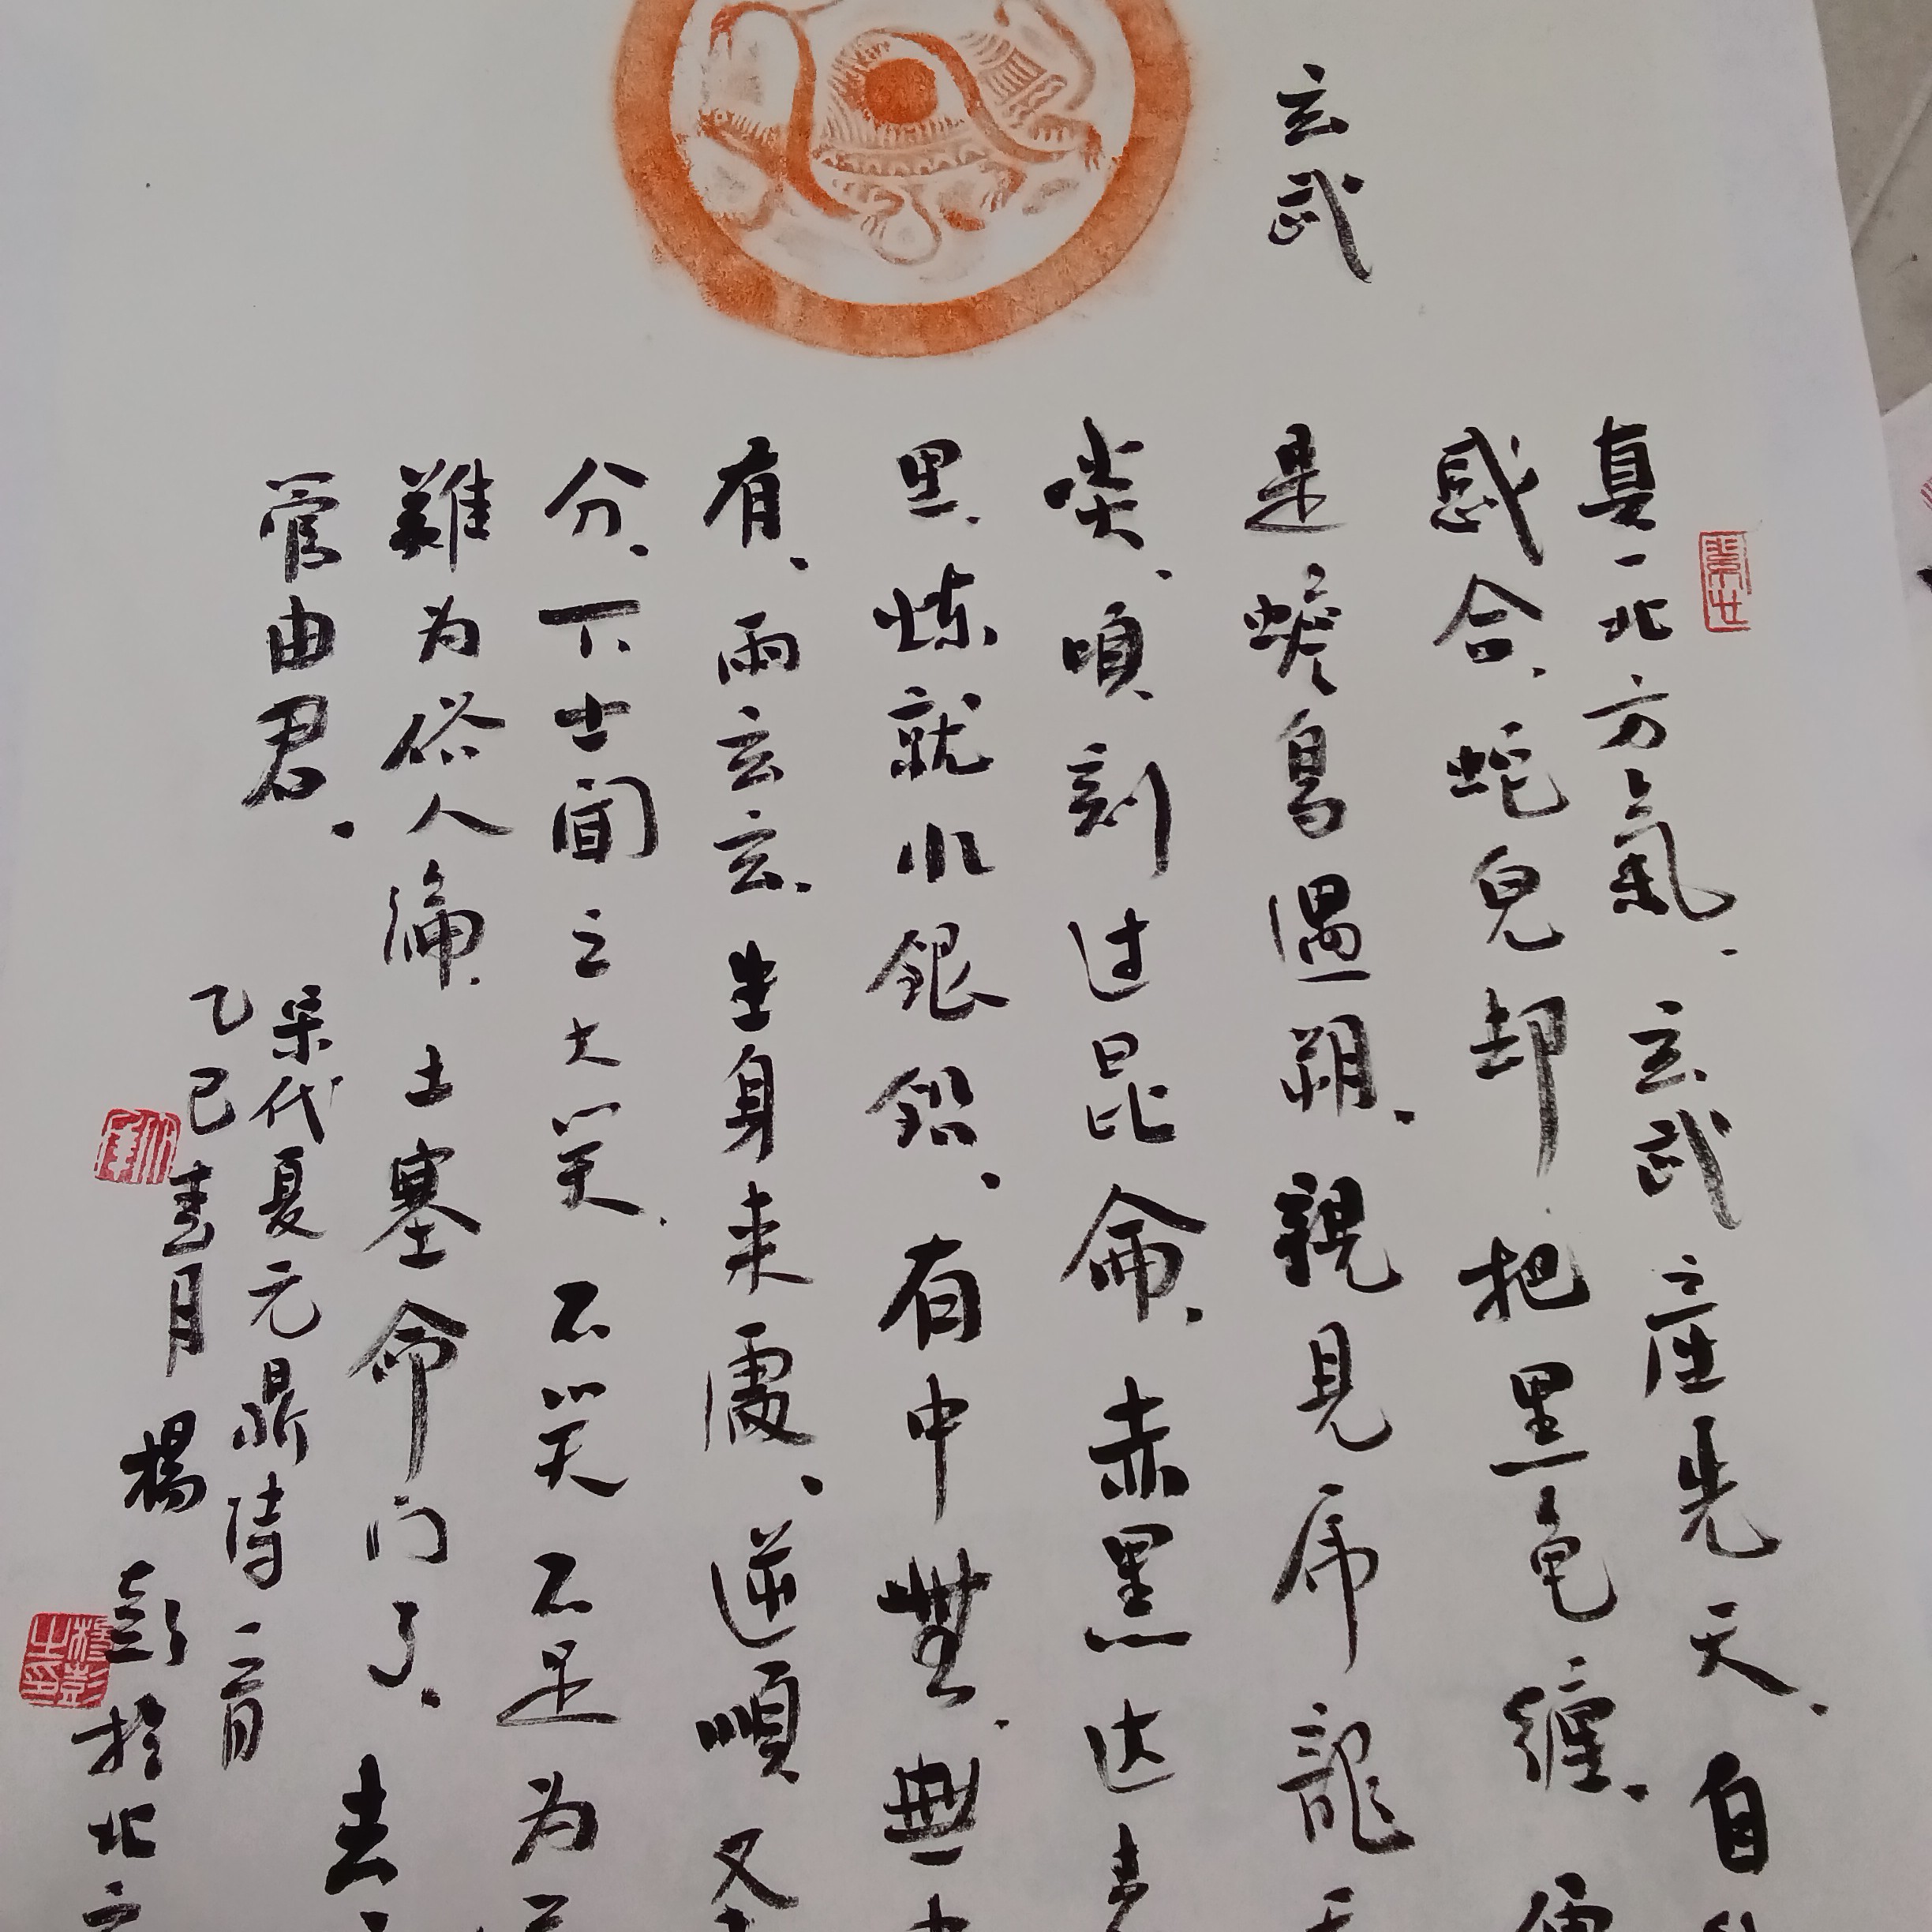 玄武
真一北方氣、玄武產先天、自
感合、蛇兒却把黑龟纏、便
是蟾烏遇朔、親見虎龍
啖、頃刻过昆侖、赤黑达
里、炼就水銀鉛、有中無、無中
有、兩玄玄、生身来處、逆順又
分、下士聞之大笑、不笑不足为
難为俗人傳、土塞命门了、去
管由君、
宋代夏元鼎詩二首
乙巳春月楊彭於北